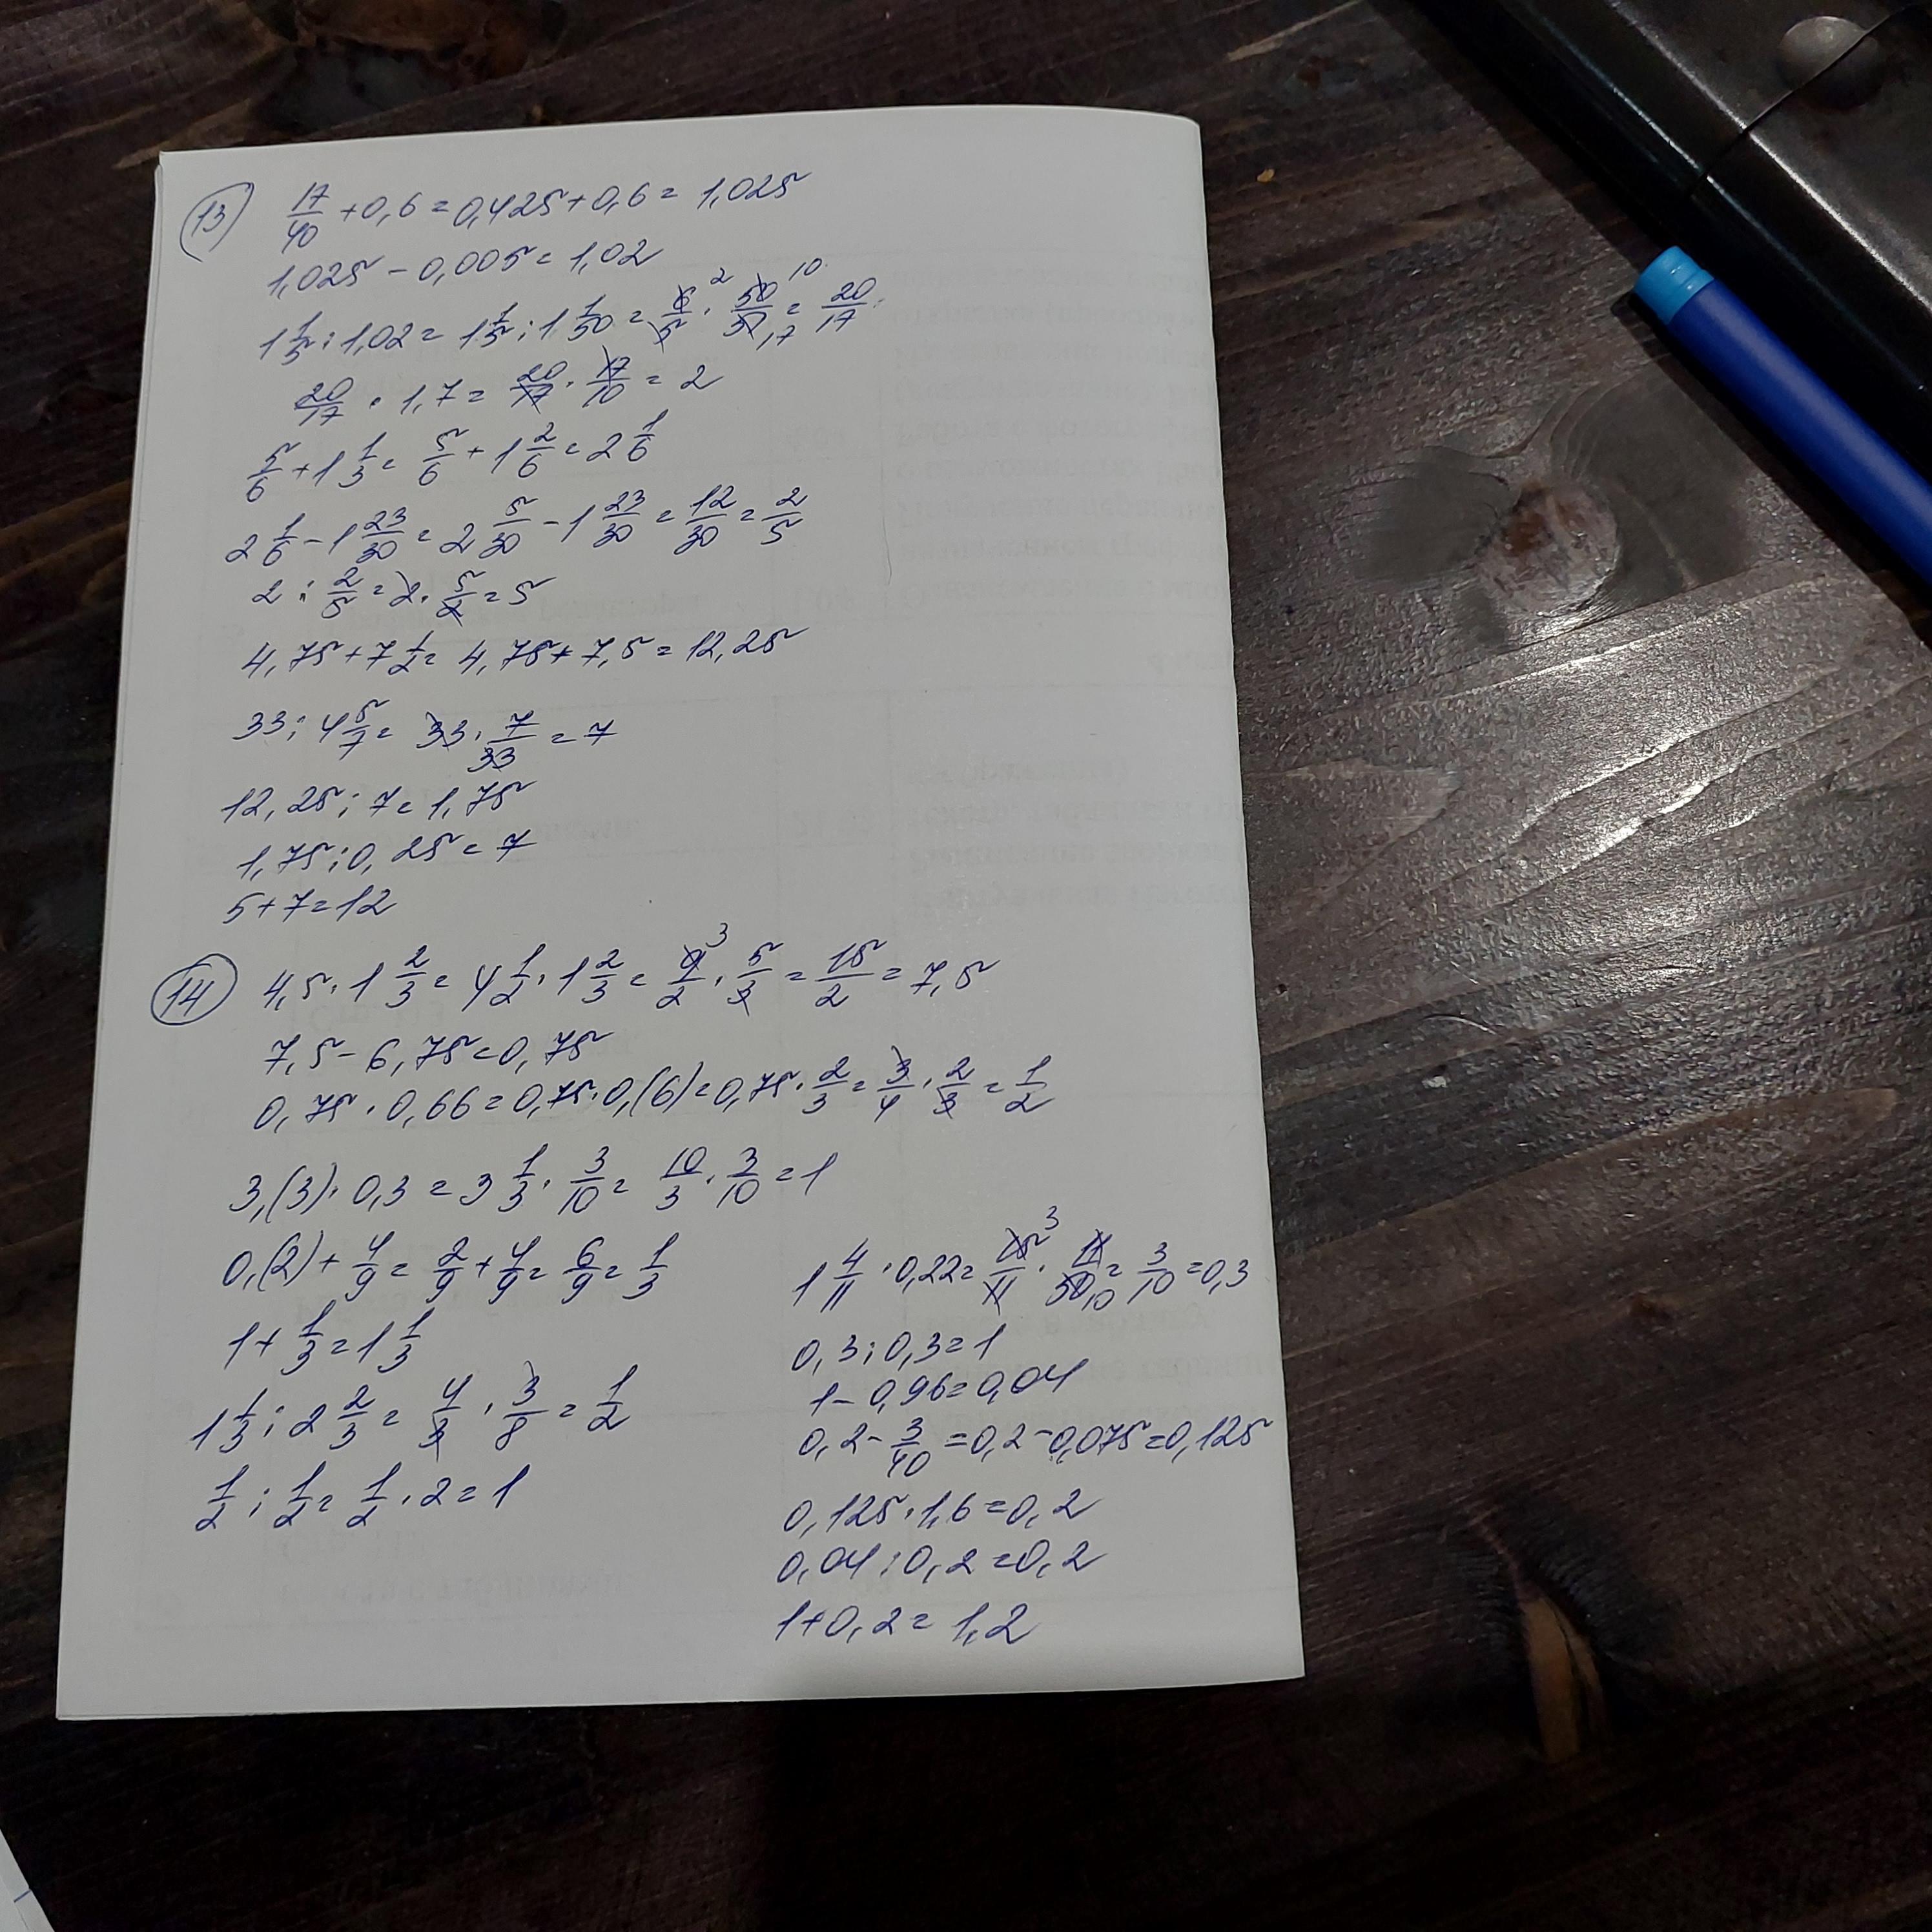 13 17/40 + 0,6 = 0,425 + 0,6 = 1,025
1,025 - 0,005 = 1,02
1 1/5 : 1,02 = 1 1/5 : 1 1/50 = 6/5 2 · 50/51 10 17 = 20/17
20/17 · 1,7 = 20/17 · 17/10 = 2
5/6 + 1 1/3 = 5/6 + 1 2/6 = 2 1/6
2 1/6 - 1 23/30 = 2 5/30 - 1 23/30 = 12/30 = 2/5
2 : 2/5 = 2 · 5/2 = 5
4,75 + 7 1/2 = 4,75 + 7,5 = 12,25
33 : 4 5/7 = 33 · 7/33 = 7
12,25 : 7 = 1,75
1,75 : 0,25 = 7
5 + 7 = 12
14 4,5 · 1 2/3 = 4 1/2 · 1 2/3 = 9/2 3 · 5/3 = 15/2 = 7,5
7,5 - 6,75 = 0,75
0,75 · 0,66 = 0,75 · 0,(6) = 0,75 · 2/3 = 3/4 · 2/3 = 1/2
3,(3) · 0,3 = 3 1/3 · 3/10 = 10/3 · 3/10 = 1
0,(2) + 4/9 = 2/9 + 4/9 = 6/9 = 1/3
1 + 1/3 = 1 1/3
1 1/3 : 2 2/3 = 4/3 · 3/8 = 1/2
1/2 : 1/2 = 1/2 · 2 = 1
1 4/11 · 0,22 = 15/11 3 · 11/50 10 = 3/10 = 0,3
0,3 : 0,3 = 1
1 - 0,96 = 0,04
0,2 - 3/40 = 0,2 - 0,075 = 0,125
0,125 · 1,6 = 0,2
0,04 : 0,2 = 0,2
1 + 0,2 = 1,2